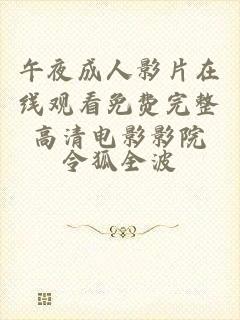 午夜成人影片在
线观看免费完整
高清电影影院
令狐全波